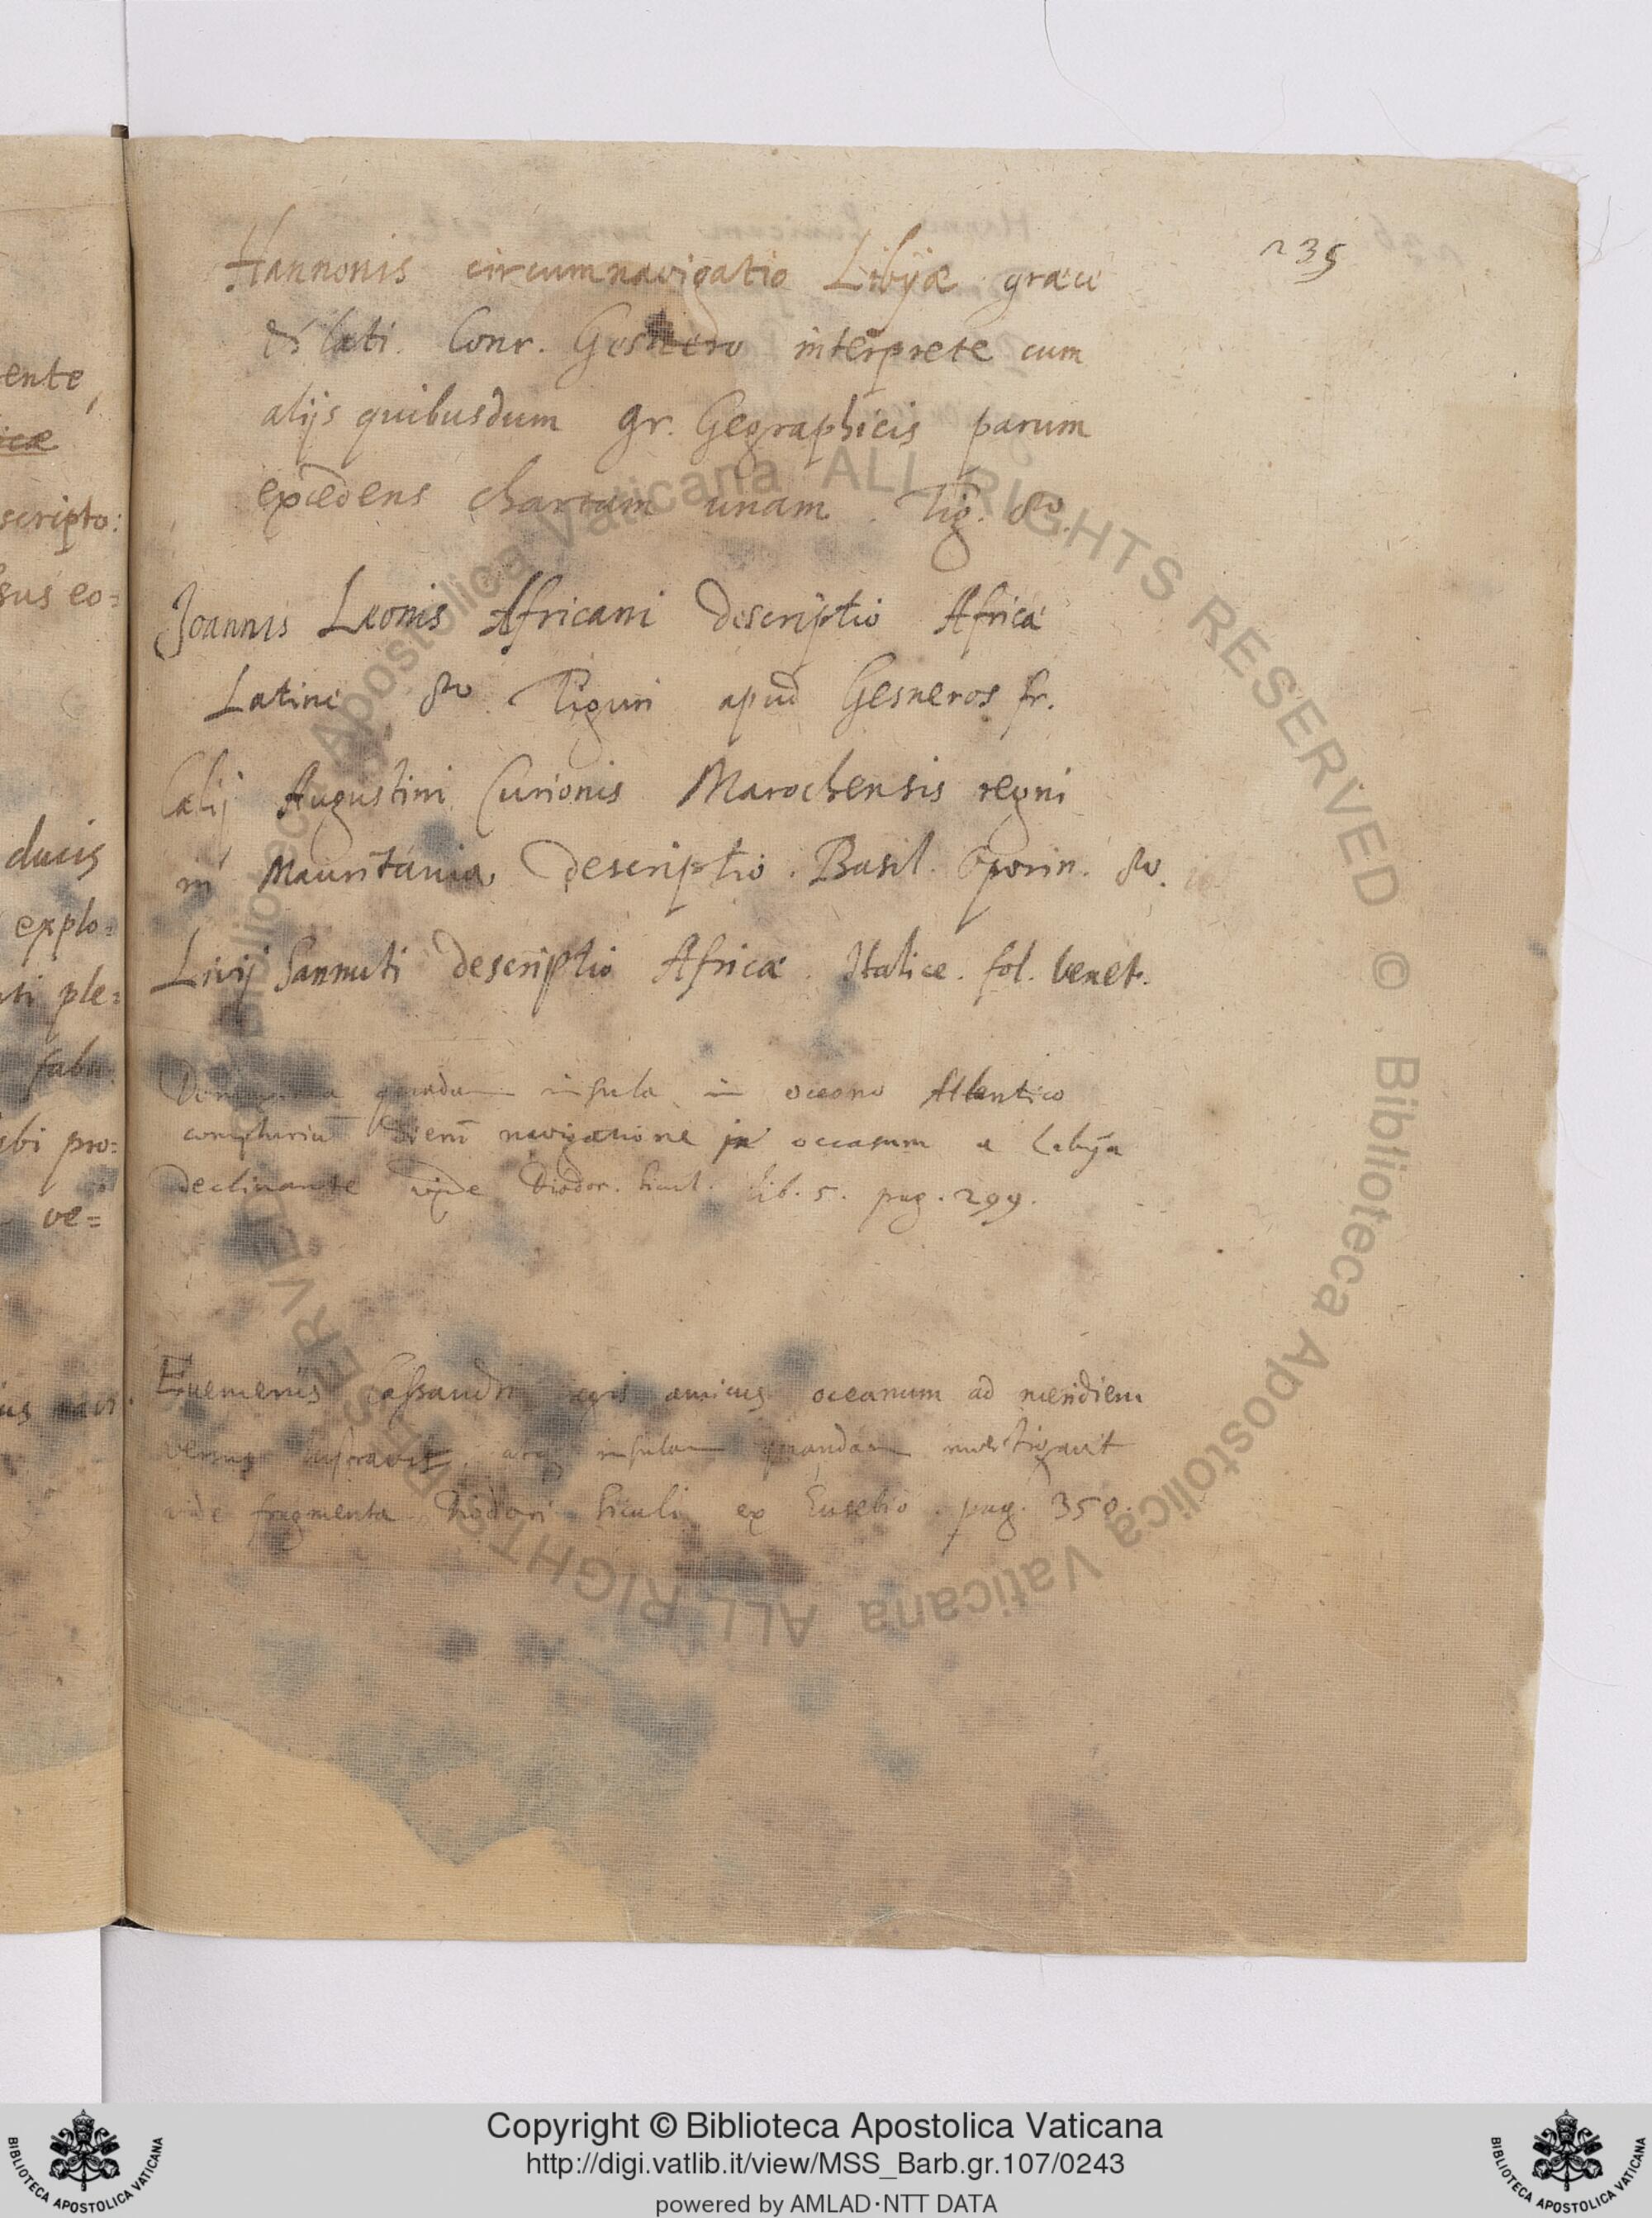 235
Hannonis circumnavigatio Libyæ græce
& lati. Conr. Gesnero interprete cum
alijs quibusdum gr. Geographicis parum
excedens chartam unam. Tig. 8o.
Joannis Leonis Africani descriptio Africæ
Latine 8vo. Tiguri apud Gesneros fr.
Cælij Augustini Curionis Marochensis regni
in Mauritania descriptio. Basil. Oporin. 8vo.
Livij Sannuti descriptio Africæ. Italice. fol. Venet.
quædam insula in oceano Atlantico
compluriū dierū navigatione in occasum a Libya
declinante vide Diodor. Sicul. lib. 5. pag. 299.
Euemerus Cassandri regis amicus oceanum ad meridiem
versus lustravit, atq insulam quandam investigavit
vide fragmenta Diodori Siculi ex Eusebio. pag. 350.
ente,
icæ
scripto:
sus eo=
ducis
explo=
ti ple=
fabu
ibi pro=
ve=
Biblioteca Apostolica Vaticana ALL RIGHTS RESERVED © Biblioteca Apostolica Vaticana ALL RIGHTS RESERVED ©
BIBLIOTECA APOSTOLICA VATICANA
Copyright © Biblioteca Apostolica Vaticana
http://digi.vatlib.it/view/MSS_Barb.gr.107/0243
powered by AMLAD·NTT DATA
BIBLIOTECA APOSTOLICA VATICANA